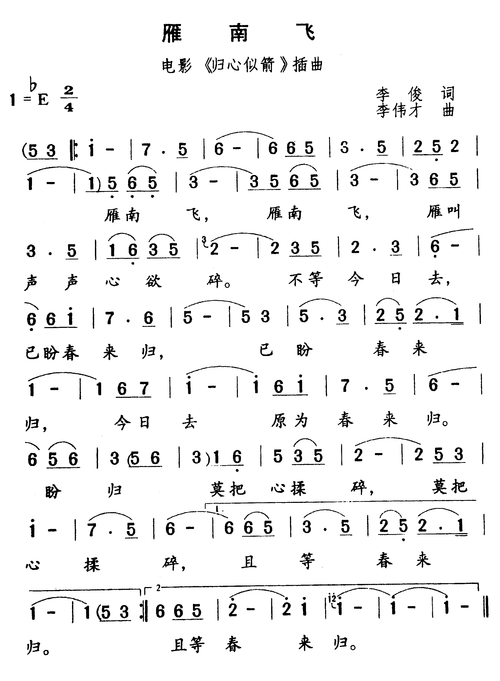 雁南飞
电影《归心似箭》插曲
1=♭E 2/4
李俊 词
李伟才 曲
(5 3 |: i - | 7 . 5 | 6 - | 6 6 5 | 3 . 5 | 2 5 2 |
1 - | 1) 5 6 5 | 3 - | 3 5 6 5 | 3 - | 1 2 |
雁南 飞， 雁南 飞， 雁叫
3 . 5 | 1 6 3 5 | 2 - | 2 3 5 | 2 . 3 | 6 - |
声 声 心 欲 碎。 不等 今 日 去，
6 6 i | 7 . 6 | 5 - | 5 3 | 5 . 3 | 2 5 2 . 1 |
已盼春 来 归， 已 盼 春 来
1 - | 1 6 7 | 5 - | 1 6 i | 7 . 5 | 6 - |
归， 今 日 去 原为 春 来 归。
6 5 6 | 3 (5 6 | 3) 1 6 | 3 5 3 | 2 - | 2 6 5 |
盼 归 莫把 心揉 碎， 莫把
i - | 7 . 5 | 6 - | 6 5 | 3 . 5 | 2 5 2 . 1 |
1.
心 揉 碎， 且 等 春 来
1 - | 1 (5 3 :| 6 6 5 | 2 - | 2 i | i - | i - ‖
2
归。 且等 春 来 归。